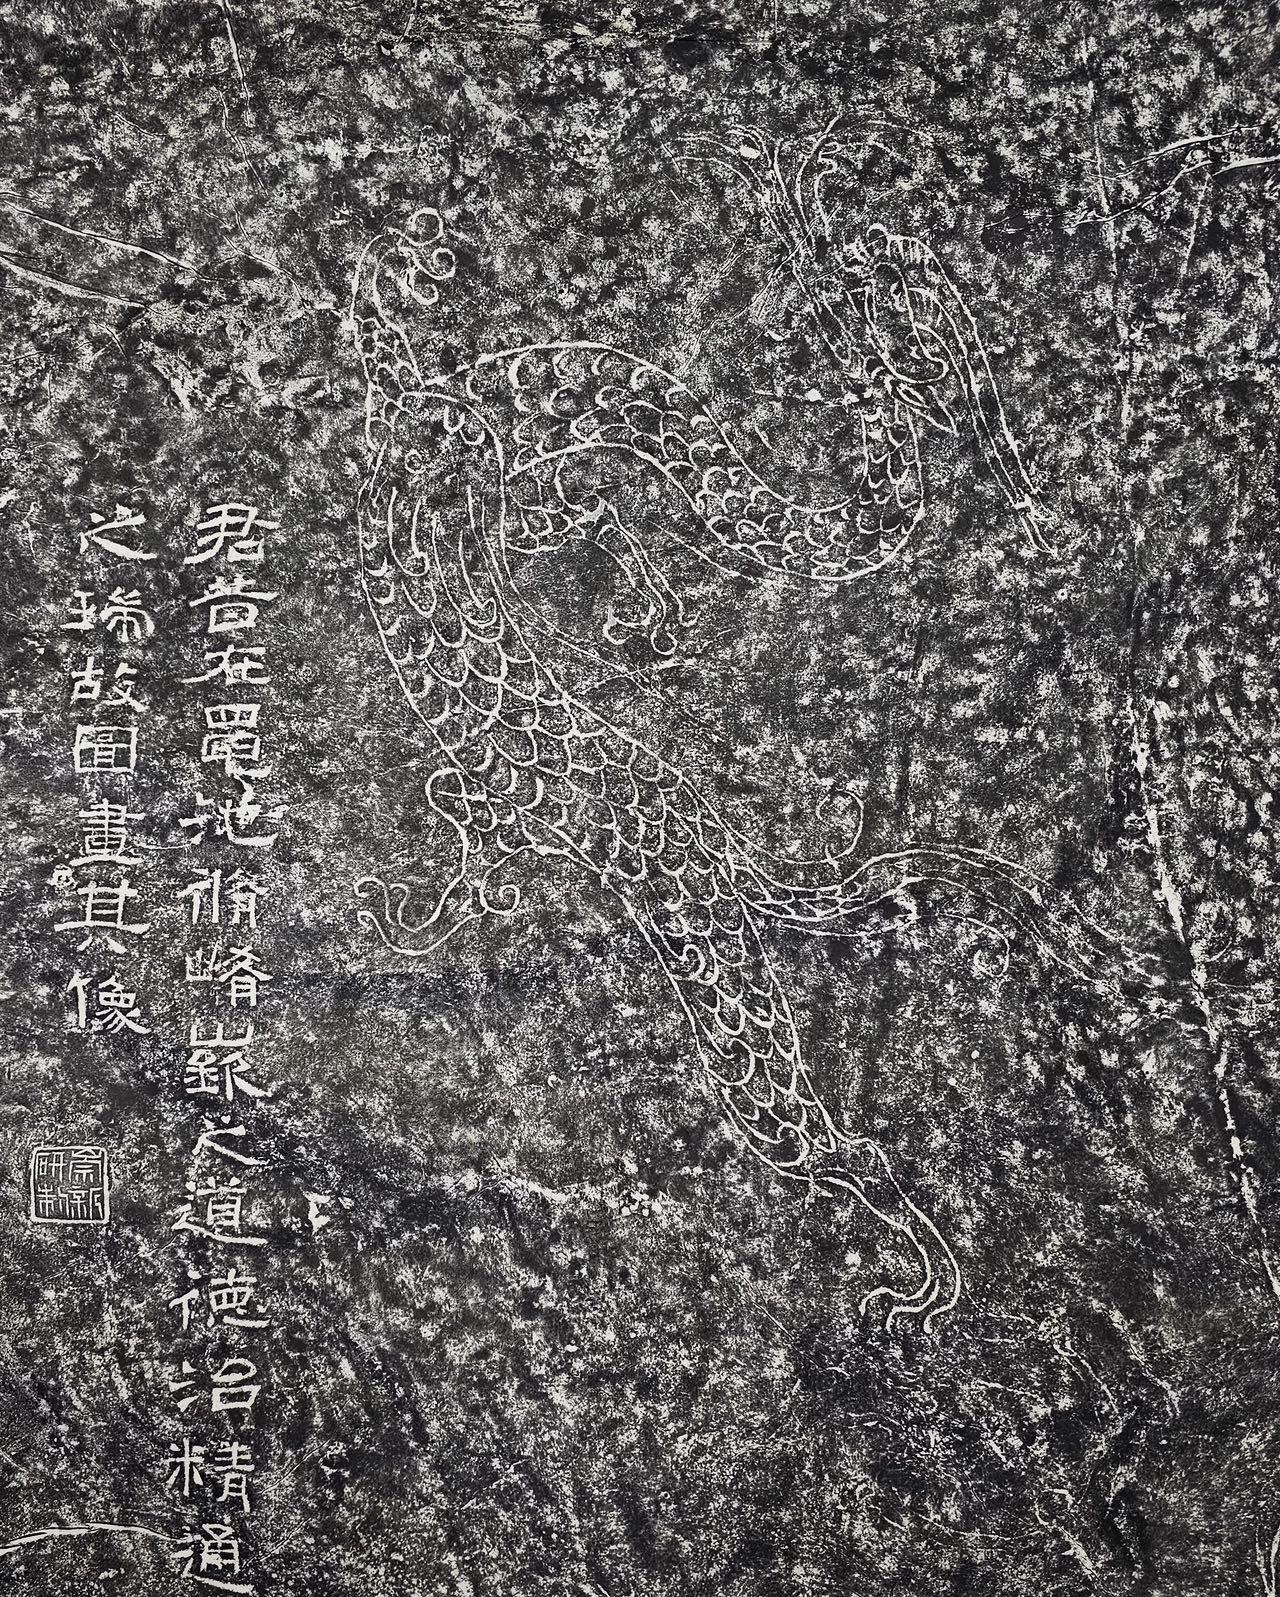 君昔在黽池脩崤嶔之道德治精通
之瑞故圖畫其像
新
研制